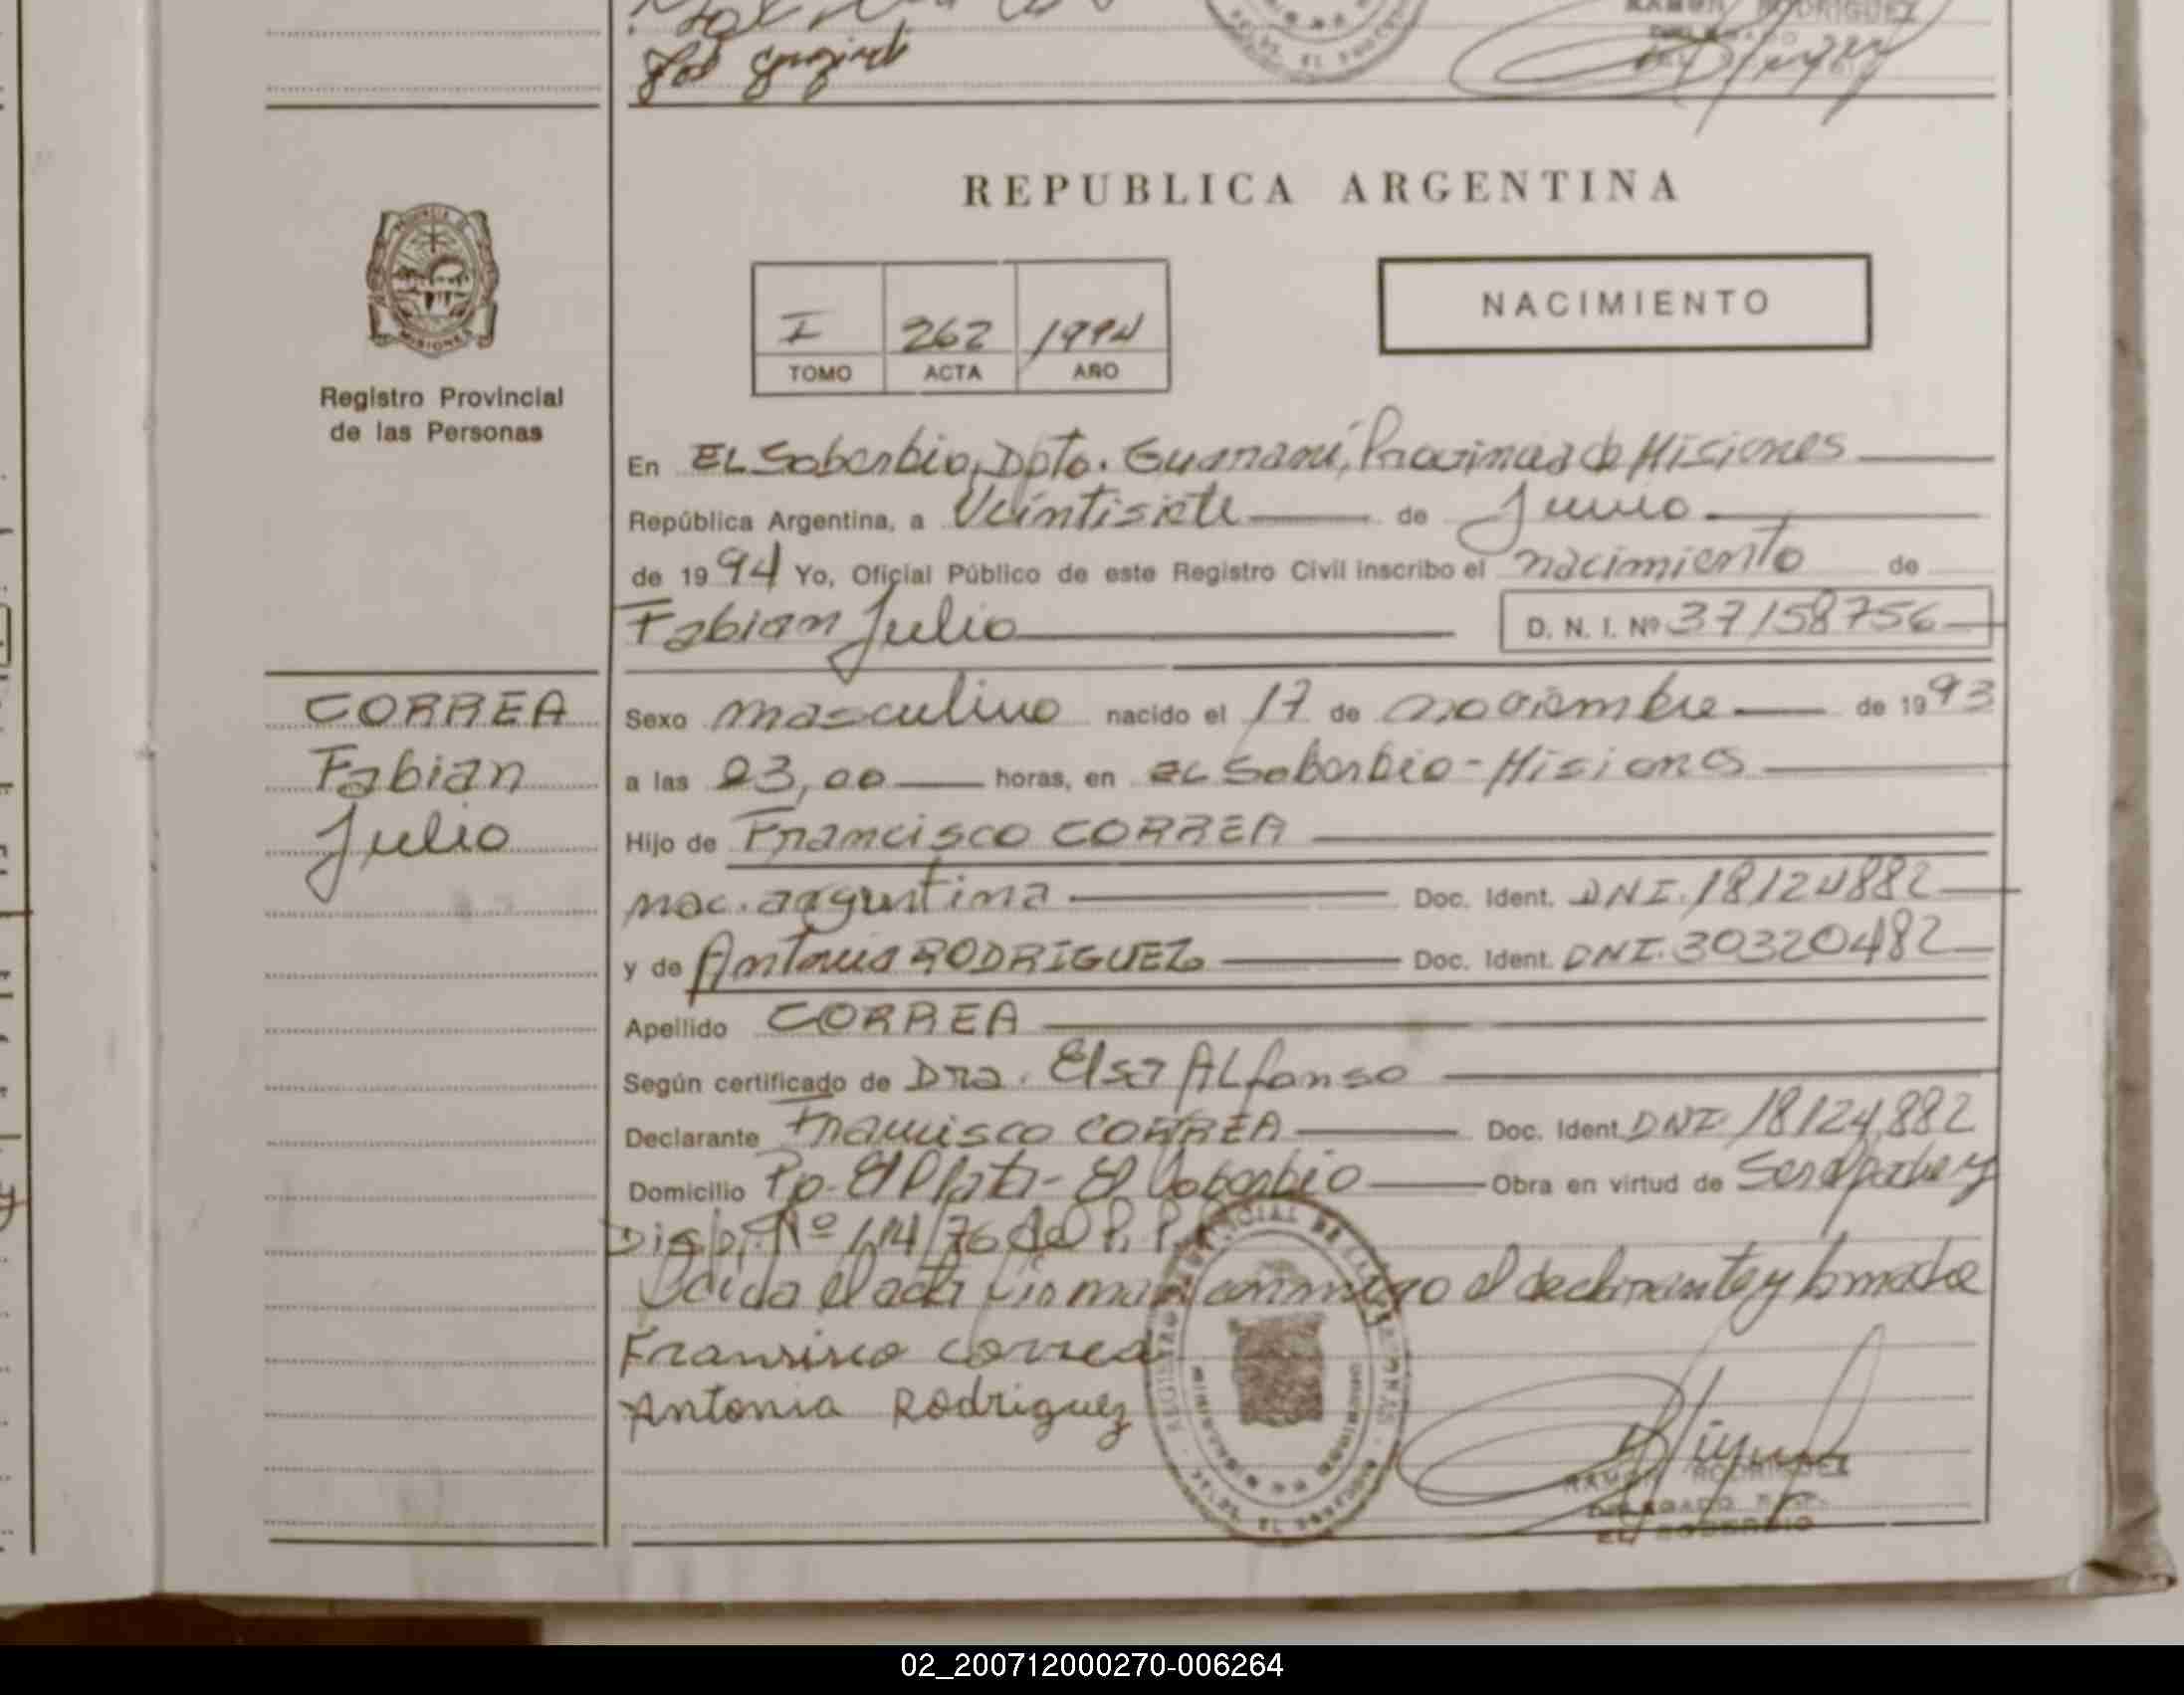 RAMON RODRIGUEZ
REPUBLICA ARGENTINA
I 262 1994
TOMO ACTA AÑO
NACIMIENTO
MISIONES
Registro Provincial
de las Personas
En EL Soberbio, Dpto. Guaraní, Provincia de Misiones
República Argentina, a Veintisiete de Junio
de 1994 Yo, Oficial Público de este Registro Civil inscribo el nacimiento de
Fabian Julio D. N. I. Nº 37158756
CORREA
Fabian
Julio
Sexo masculino nacido el 17 de noviembre de 1993
a las 23,00 horas, en EL Soberbio - Misiones
Hijo de Francisco CORREA
nac. argentina Doc. Ident. DNI. 18124882
y de Antonia RODRIGUEZ Doc. Ident. DNI. 30320482
Apellido CORREA
Según certificado de Dra. Elsa ALfonso
Declarante Francisco CORREA Doc. Ident. DNI 18124,882
Domicilio Pp. El Plata - El Soberbio Obra en virtud de Ser el padre y
Disp. Nº 114/76 del R. P. P.
Leida el acta firman conmigo el declarante y la madre
Fransisco correa
Antonia Rodriguez
RAMON RODRIGUEZ
DELEGADO R.P.P.
EL SOBERBIO
02_200712000270-006264